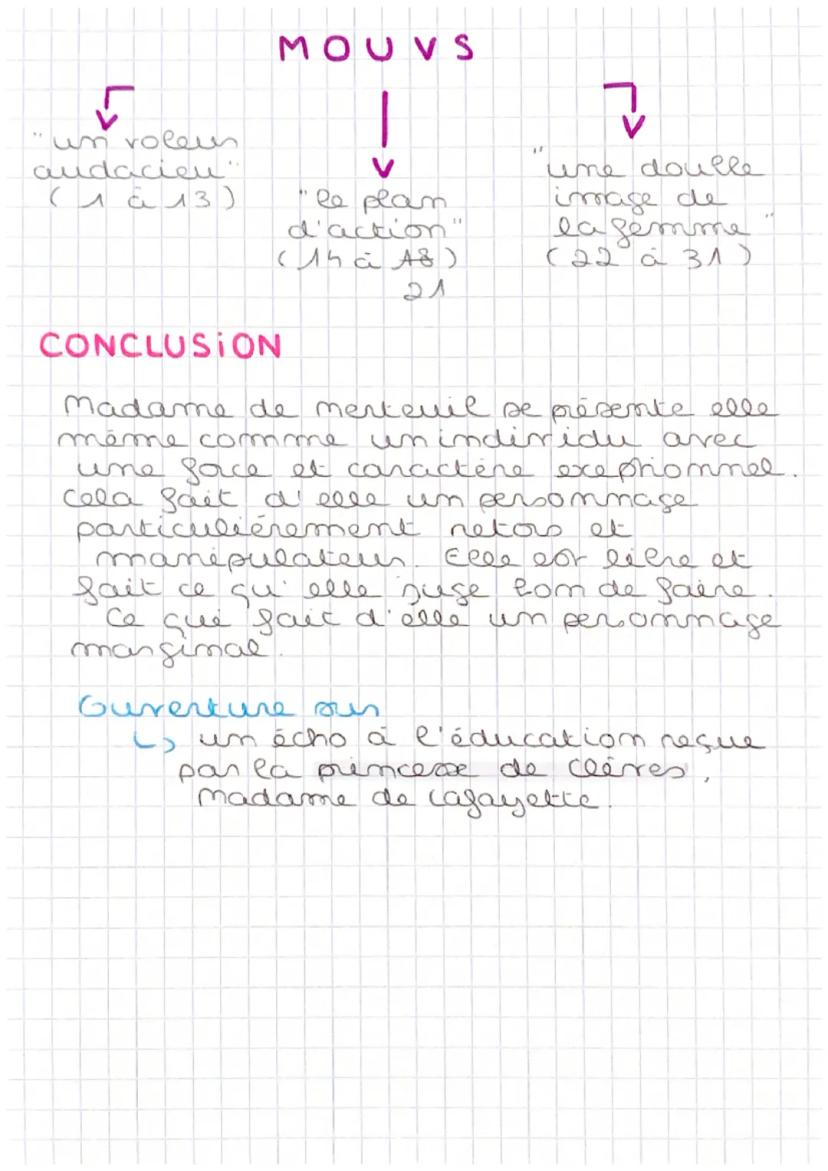 MOUVS
"un voleur
audacieu"
(1 à 13)
"le plan
d'action"
(14 à 18)
21
"une double
image de
la femme"
(22 à 31)
CONCLUSiON
Madame de merteuil se présente elle
même comme un individu avec
une force et caractère exceptionnel.
Cela fait d'elle un personnage
particuliérement retors et
manipulateur. Elle est libre et
fait ce qu'elle juge bon de faire.
Ce qui fait d'elle un personnage
marginal.
Ouverture sur
↳ un écho à l'éducation reçue
par la princesse de clèves,
Madame de Lafayette.